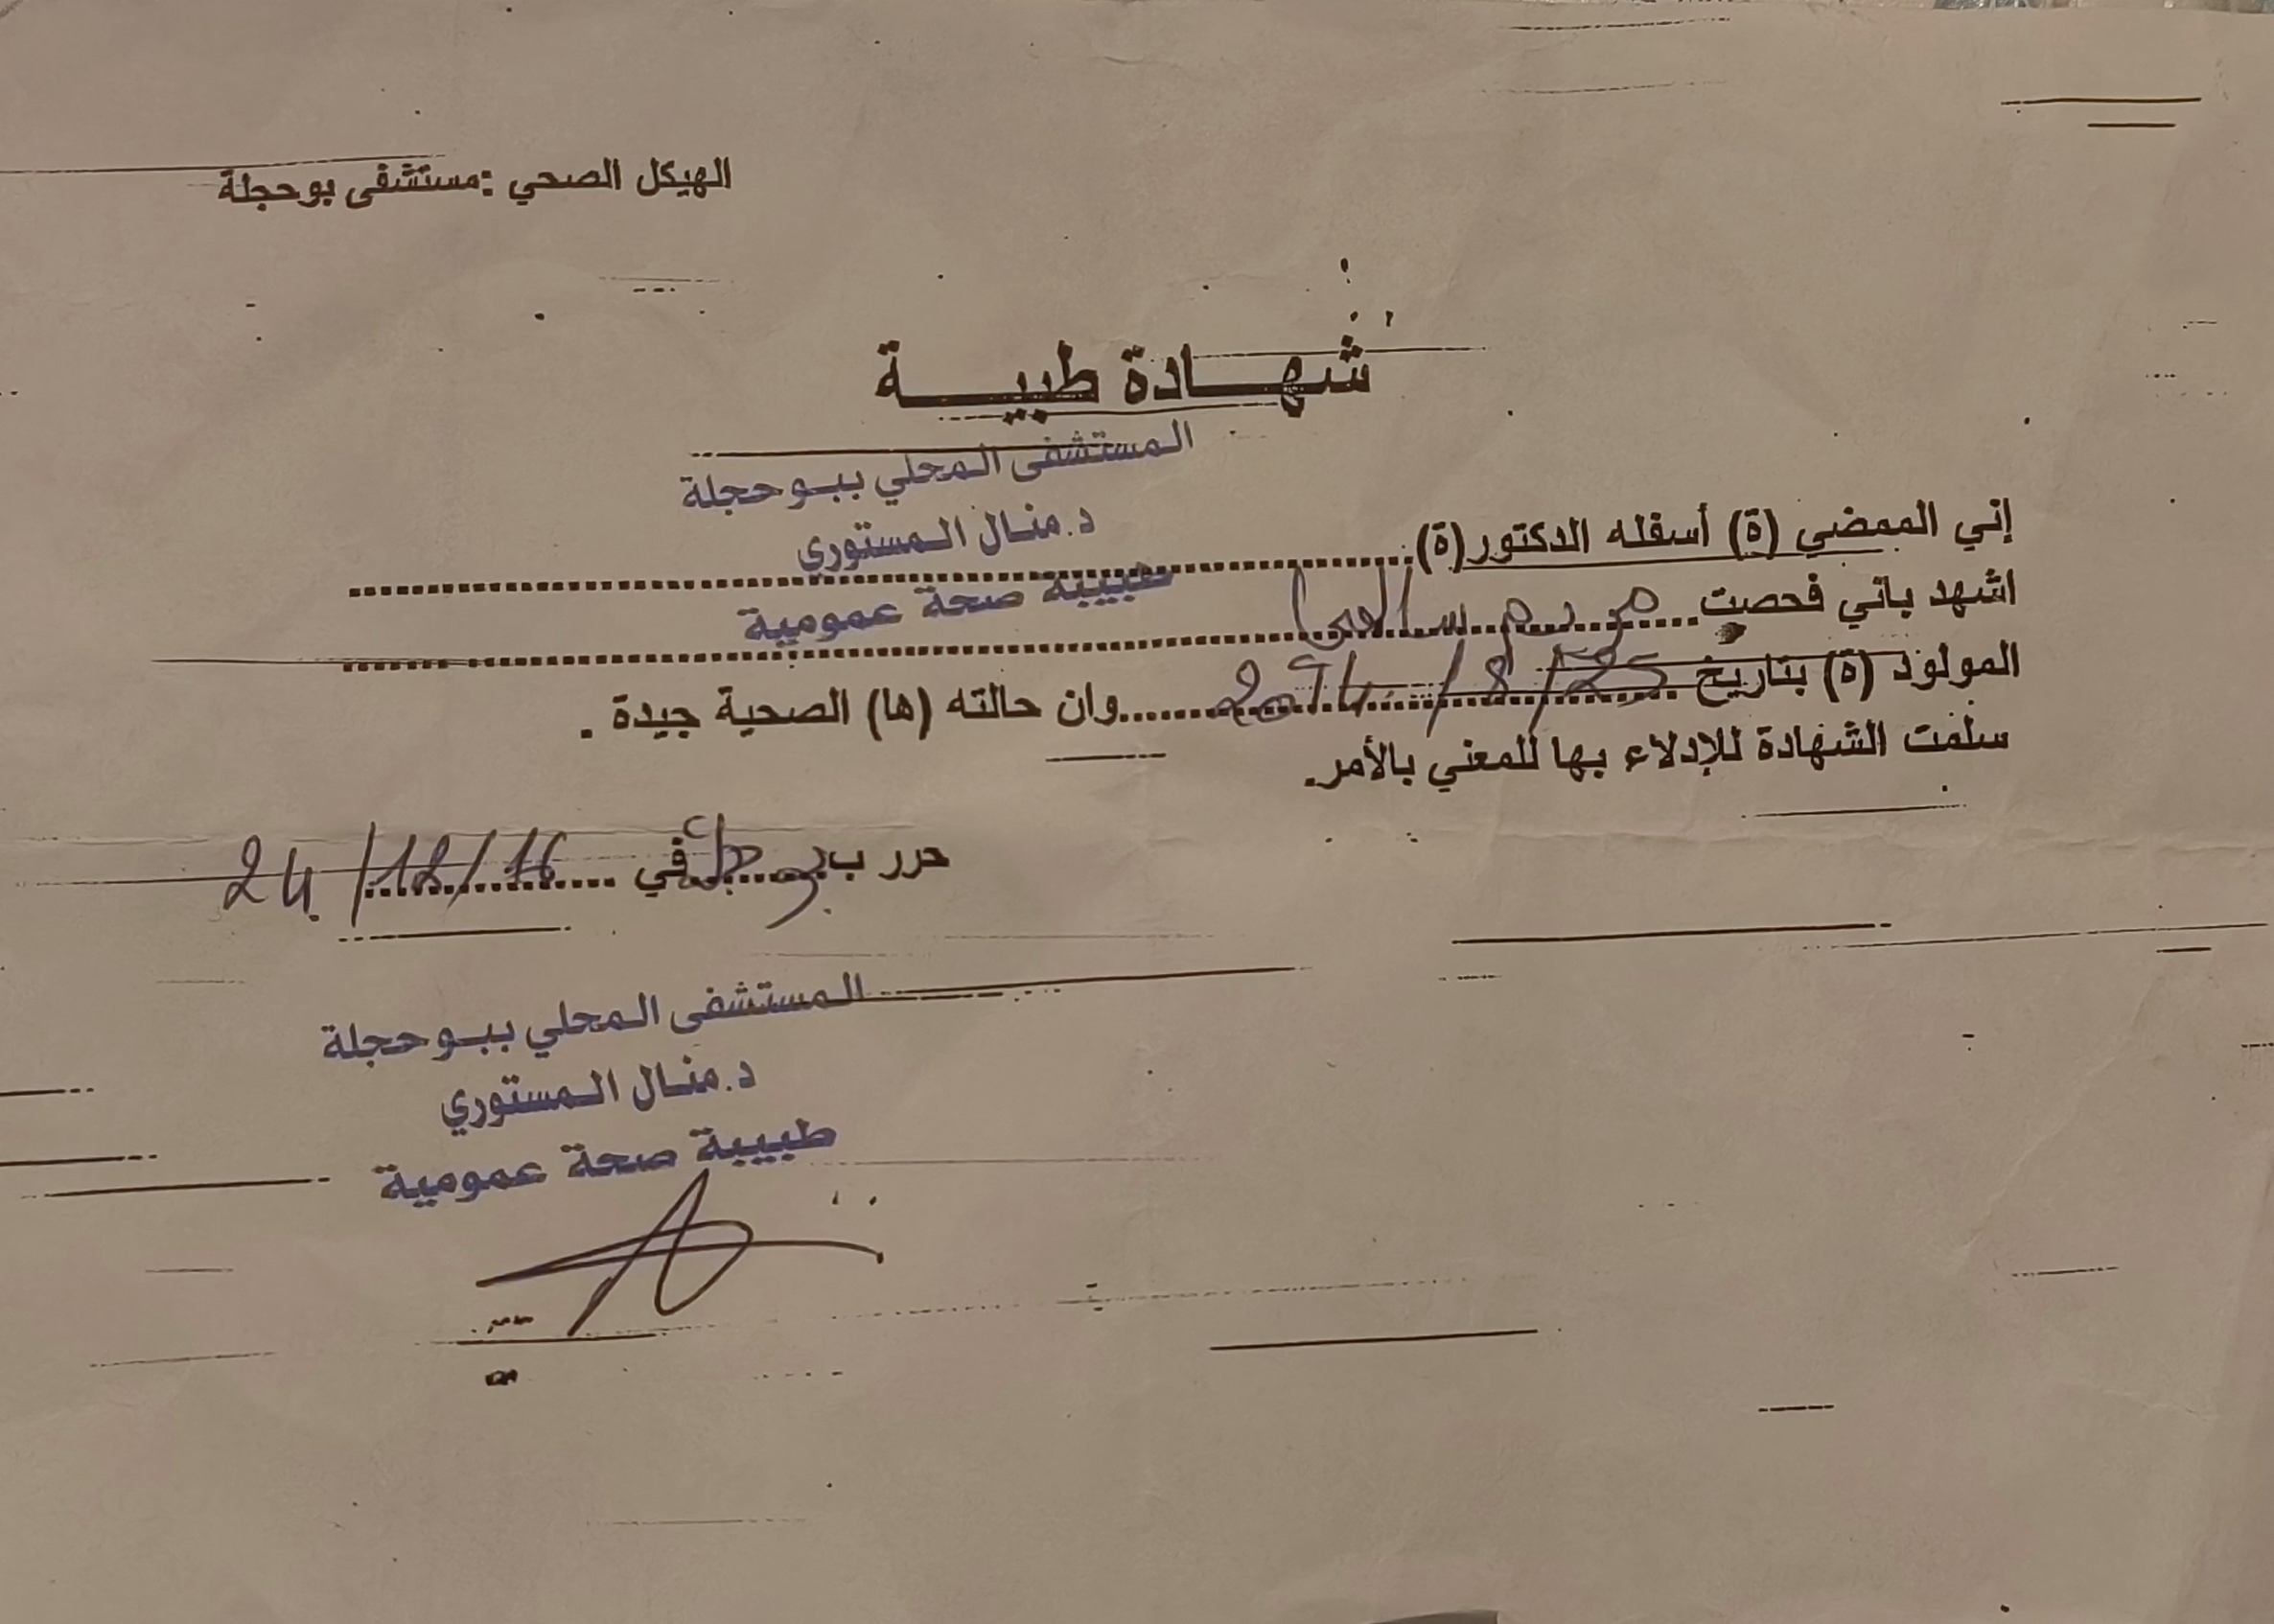 الهيكل الصحي :مستشفى بوحجلة
شهادة طبية
المستشفى المحلي ببوحجلة
د.منال المستوري
طبيبة صحة عمومية
إني الممضي (ة) أسفله الدكتور(ة)
اشهد باني فحصت مريم سالمي
المولود (ة) بتاريخ 25/8/ وان حالته (ها) الصحية جيدة .
سلمت الشهادة للإدلاء بها للمعني بالأمر.
حرر ب في 16/12/24
المستشفى المحلي ببوحجلة
د.منال المستوري
طبيبة صحة عمومية